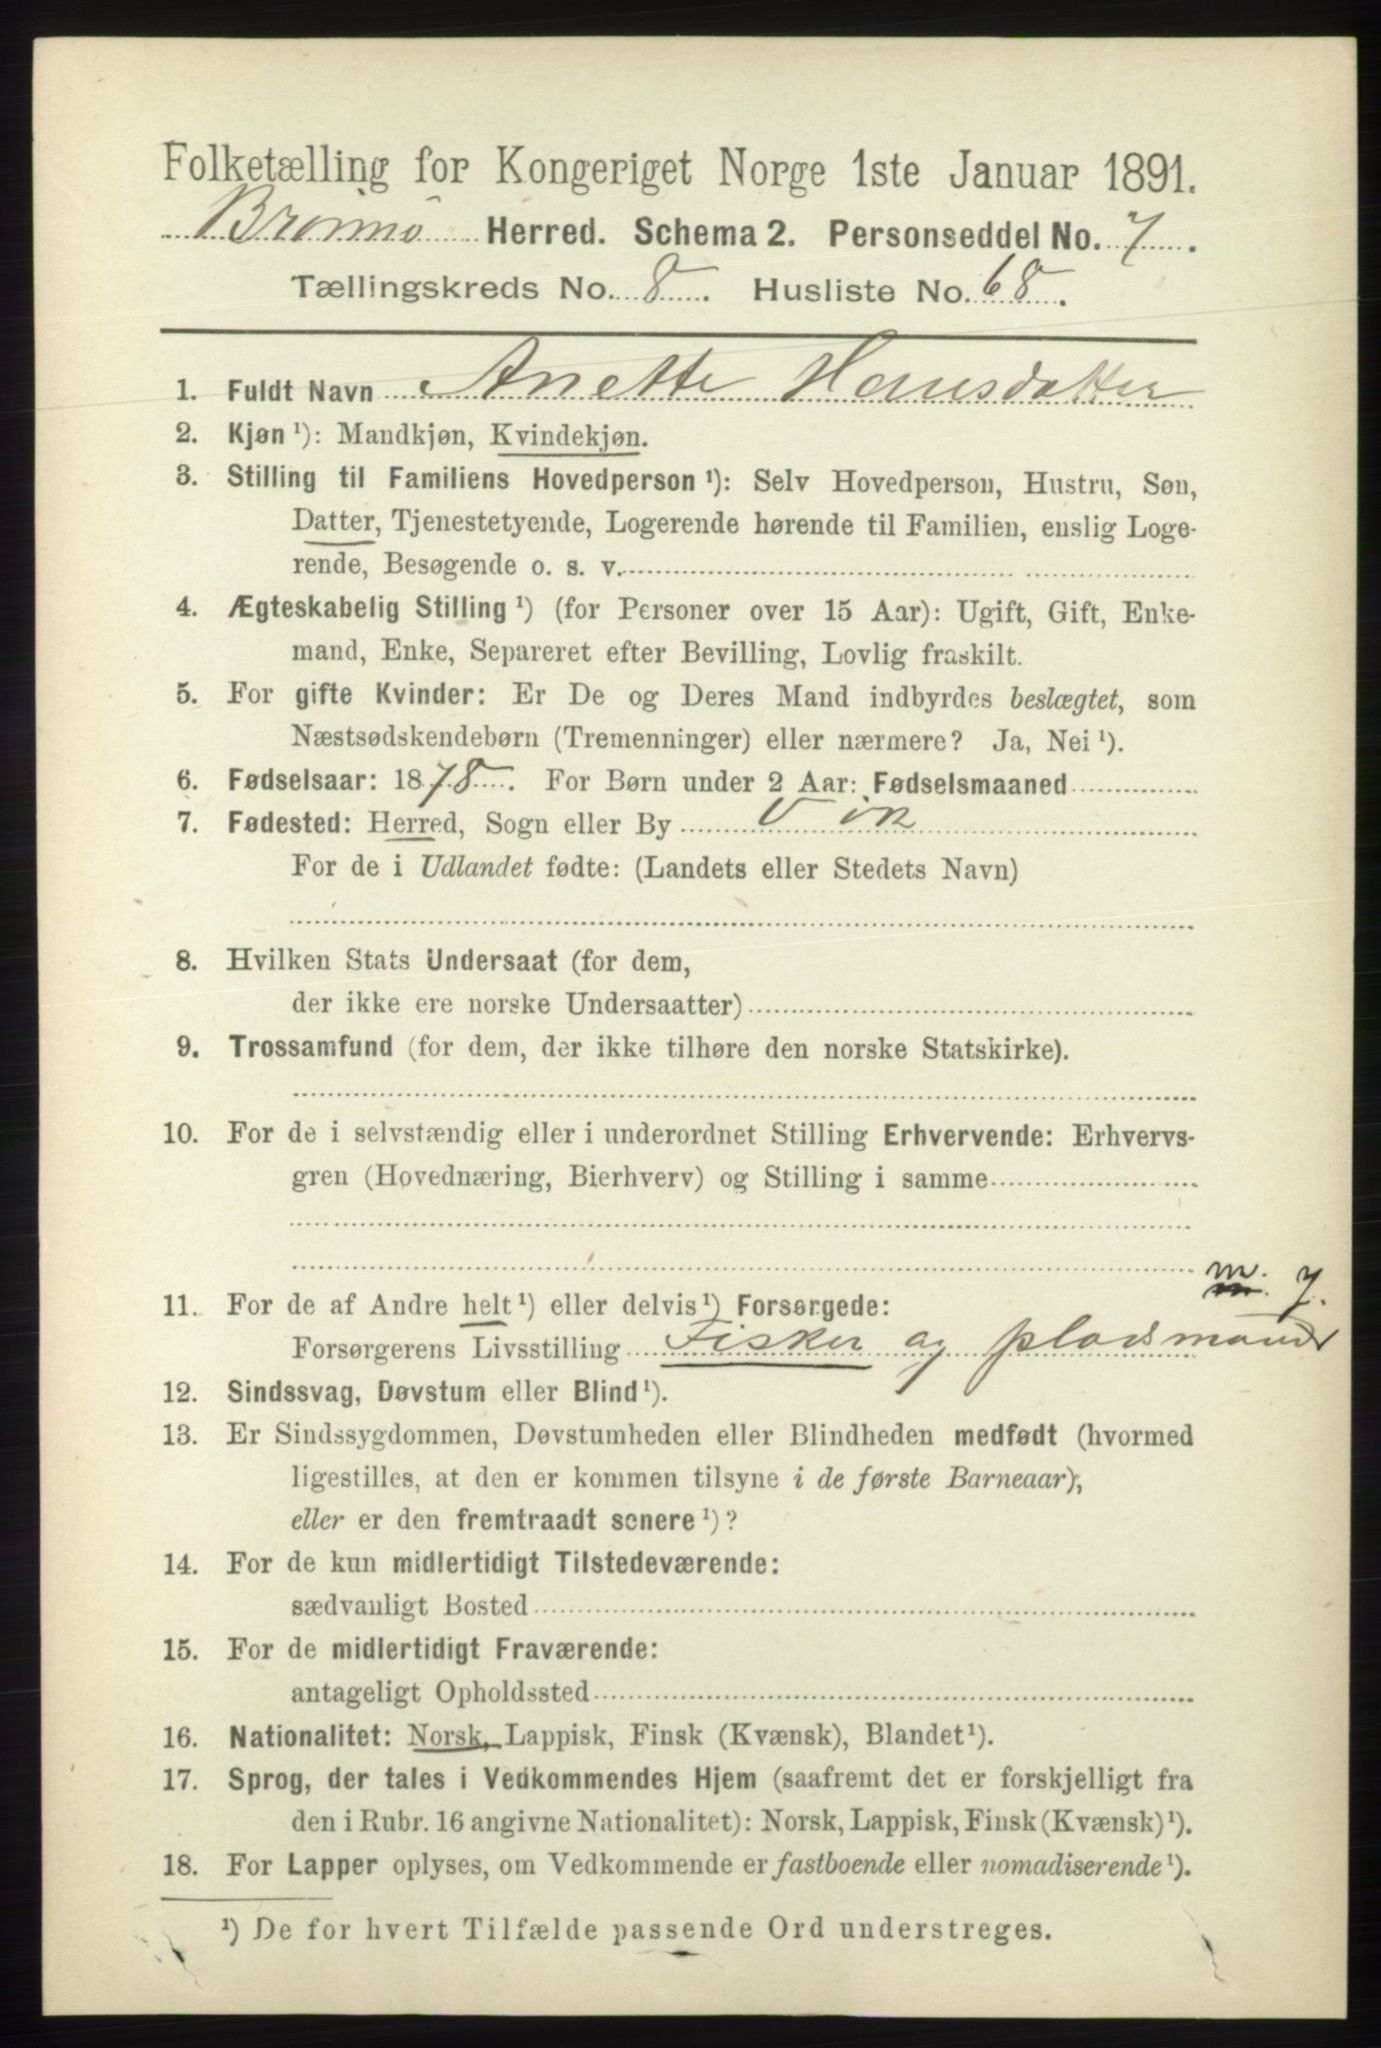 Folketælling for Kongeriget Norge 1ste Januar 1891.
Brønnø Herred. Schema 2. Personseddel No. 7.
Tællingskreds No. 8. Husliste No. 68.
1. Fuldt Navn Anette Hansdatter
2. Kjøn ¹): Mandkjøn, Kvindekjøn.
3. Stilling til Familiens Hovedperson ¹): Selv Hovedperson, Hustru, Søn,
Datter, Tjenestetyende, Logerende hørende til Familien, enslig Loge-
rende, Besøgende o. s. v.
4. Ægteskabelig Stilling ¹) (for Personer over 15 Aar): Ugift, Gift, Enke-
mand, Enke, Separeret efter Bevilling, Lovlig fraskilt.
5. For gifte Kvinder: Er De og Deres Mand indbyrdes beslægtet, som
Næstsødskendebørn (Tremenninger) eller nærmere? Ja, Nei ¹).
6. Fødselsaar: 1878. For Børn under 2 Aar: Fødselsmaaned
7. Fødested: Herred, Sogn eller By Vik
For de i Udlandet fødte: (Landets eller Stedets Navn)
8. Hvilken Stats Undersaat (for dem,
der ikke ere norske Undersaatter)
9. Trossamfund (for dem, der ikke tilhøre den norske Statskirke).
10. For de i selvstændig eller i underordnet Stilling Erhvervende: Erhvervs-
gren (Hovednæring, Bierhverv) og Stilling i samme
m. 7.
11. For de af Andre helt ¹) eller delvis ¹) Forsørgede:
Forsørgerens Livsstilling Fisker og pladsmand
12. Sindssvag, Døvstum eller Blind ¹).
13. Er Sindssygdommen, Døvstumheden eller Blindheden medfødt (hvormed
ligestilles, at den er kommen tilsyne i de første Barneaar),
eller er den fremtraadt senere ¹)?
14. For de kun midlertidigt Tilstedeværende:
sædvanligt Bosted
15. For de midlertidigt Fraværende:
antageligt Opholdssted
16. Nationalitet: Norsk, Lappisk, Finsk (Kvænsk), Blandet ¹).
17. Sprog, der tales i Vedkommendes Hjem (saafremt det er forskjelligt fra
den i Rubr. 16 angivne Nationalitet): Norsk, Lappisk, Finsk (Kvænsk) ¹).
18. For Lapper oplyses, om Vedkommende er fastboende eller nomadiserende ¹).
¹) De for hvert Tilfælde passende Ord understreges.